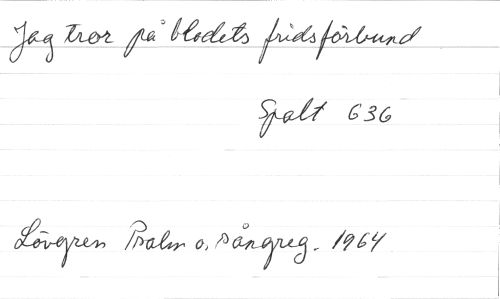 Jag tror på blodets fridsförbund
Spalt 636
Lövgren Psalm o. sångreg. 1964